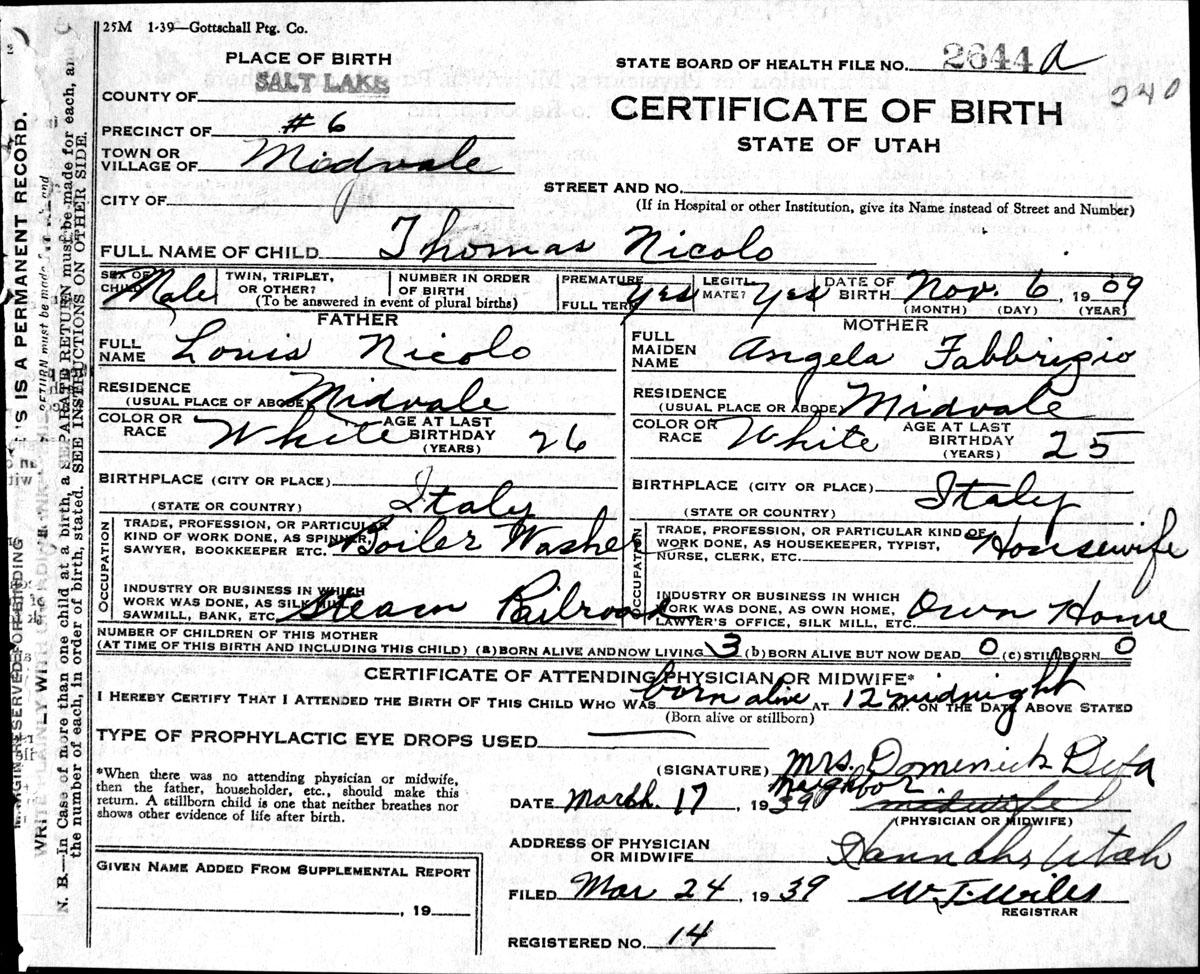 25M 1-39—Gottschall Ptg. Co.
PLACE OF BIRTH
STATE BOARD OF HEALTH FILE NO. 2644 a
240
COUNTY OF SALT LAKE
CERTIFICATE OF BIRTH
STATE OF UTAH
PRECINCT OF #6
TOWN OR VILLAGE OF Midvale
CITY OF
STREET AND NO.
(If in Hospital or other Institution, give its Name instead of Street and Number)
FULL NAME OF CHILD Thomas Nicolo
SEX OF CHILD Male TWIN, TRIPLET, OR OTHER? NUMBER IN ORDER OF BIRTH
(To be answered in event of plural births)
PREMATURE FULL TERM Yes LEGITIMATE? Yes DATE OF BIRTH Nov. 6, 1909
(MONTH) (DAY) (YEAR)
FATHER
FULL NAME Louis Nicolo
RESIDENCE (USUAL PLACE OF ABODE) Midvale
COLOR OR RACE White AGE AT LAST BIRTHDAY (YEARS) 26
BIRTHPLACE (CITY OR PLACE)
(STATE OR COUNTRY) Italy
OCCUPATION
TRADE, PROFESSION, OR PARTICULAR KIND OF WORK DONE, AS SPINNER, SAWYER, BOOKKEEPER ETC. Boiler Washer
INDUSTRY OR BUSINESS IN WHICH WORK WAS DONE, AS SILK MILL, SAWMILL, BANK, ETC. Steam Railroad
MOTHER
FULL MAIDEN NAME Angela Fabbrizio
RESIDENCE (USUAL PLACE OR ABODE) Midvale
COLOR OR RACE White AGE AT LAST BIRTHDAY (YEARS) 25
BIRTHPLACE (CITY OR PLACE)
(STATE OR COUNTRY) Italy
OCCUPATION
TRADE, PROFESSION, OR PARTICULAR KIND OF WORK DONE, AS HOUSEKEEPER, TYPIST, NURSE, CLERK, ETC. Housewife
INDUSTRY OR BUSINESS IN WHICH WORK WAS DONE, AS OWN HOME, LAWYER'S OFFICE, SILK MILL, ETC. Own Home
NUMBER OF CHILDREN OF THIS MOTHER
(AT TIME OF THIS BIRTH AND INCLUDING THIS CHILD) (a) BORN ALIVE AND NOW LIVING 3 (b) BORN ALIVE BUT NOW DEAD 0 (c) STILLBORN 0
CERTIFICATE OF ATTENDING PHYSICIAN OR MIDWIFE*
I HEREBY CERTIFY THAT I ATTENDED THE BIRTH OF THIS CHILD WHO WAS born alive AT 12 midnight M. ON THE DATE ABOVE STATED
(Born alive or stillborn)
TYPE OF PROPHYLACTIC EYE DROPS USED
*When there was no attending physician or midwife,
then the father, householder, etc., should make this
return. A stillborn child is one that neither breathes nor
shows other evidence of life after birth.
(SIGNATURE) Mrs. Domenick
neighbor
DATE March. 17, 1939 midwife
(PHYSICIAN OR MIDWIFE)
ADDRESS OF PHYSICIAN OR MIDWIFE Hannahs Utah
GIVEN NAME ADDED FROM SUPPLEMENTAL REPORT
, 19
FILED Mar 24, 1939 W. J. Wiles
REGISTRAR
REGISTERED NO. 14
N. B.—In Case of more than one child at a birth, a SEPARATE RETURN must be made for each, and
the number of each, in order of birth, stated. SEE INSTRUCTIONS ON OTHER SIDE.
IS A PERMANENT RECORD.